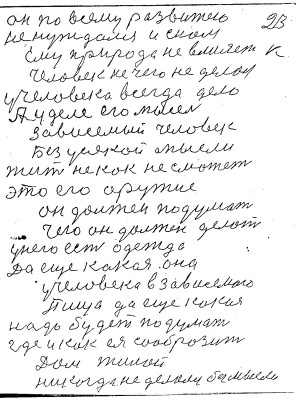 он по всему развитею 23
не нуждался и сном
Ему природа не влияет
человек не чего не делол
у человека всегда дело
А у деле его мысел
Зависемый человек
Без усякой мысли
жит некок не сможет
это его оружие
он должен подумат
чего он должен делот
у него ест одежда
Да еще какая она
у человека в зависемого
Пища да еще какоя
надо будет подумат
где и как ея сооброзит
Дом жилой
никогда не делоли бы мысли